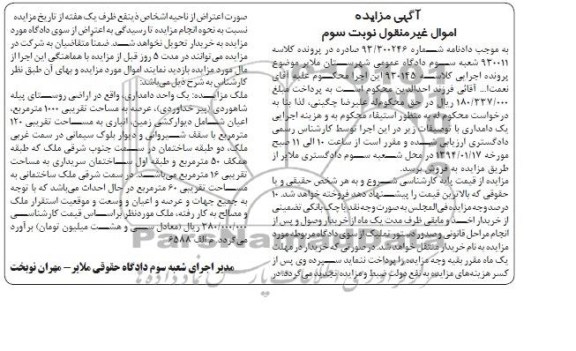 آگهی مزایده
اموال غیرمنقول نوبت سوم
به موجب دادنامه شماره ۹۳/۳۰۰۲۴۶ صادره در پرونده کلاسه
۹۳۰۰۱۱ شعبه سوم دادگاه عمومی شهرستان ملایر موضوع
پرونده اجرایی کلاسه ۹۳۰۱۴۵ این اجرا محکوم علیه آقای
نعمت‌ا... آقائی فرزند احدالدین محکوم است به پرداخت مبلغ
۱۸۰/۳۲۷/۰۰۰ ریال در حق محکوم‌له علیرضا چگینی، لذا بنا به
درخواست محکوم له به منظور استیفاء محکوم به و هزینه اجرایی
یک دامداری با توصیفات زیر در این اجرا توسط کارشناس رسمی
دادگستری ارزیابی شده و مقرر است از ساعت ۱۰ الی ۱۱ صبح
مورخه ۱۳۹۴/۰۱/۱۷ در محل شعبه سوم دادگستری ملایر از
طریق مزایده به فروش برسد.
مزایده از قیمت پایه کارشناسی شروع و به هر شخص حقیقی و یا
حقوقی که بالاترین قیمت را پیشنهاد دهد فروخته خواهد شد. ۱۰
درصد وجه مزایده فی‌المجلس به صورت وجه نقد یا چک بانکی تضمینی
از خریدار اخذ و مابقی ظرف مدت یک ماه از خریدار وصول و پس از
انجام مراحل قانونی و صدور دستور تملیک از سوی دادگاه مربوطه مورد
مزایده به نام خریدار منتقل خواهد شد. در صورتی که خریدار در مهلت
یک ماه مقرر بقیه وجه مزایده را پرداخت ننماید سپرده وی پس از
کسر هزینه‌های مزایده به نفع دولت ضبط و مزایده تجدید می‌گردد. در
صورت اعتراض از ناحیه اشخاص ذینفع ظرف یک هفته از تاریخ مزایده
نسبت به نحوه انجام مزایده تا رسیدگی به اعتراض از سوی دادگاه مورد
مزایده به خریدار تحویل نخواهد شد. ضمنا متقاضیان به شرکت در
مزایده می‌توانند در مدت ۵ روز قبل از مزایده با هماهنگی این اجرا از
مال مورد مزایده بازدید نمایند اموال مورد مزایده و بهای آن طبق نظر
کارشناس به شرح ذیل می‌باشد:
ملک مزایده: یک واحد دامداری، واقع در اراضی روستای پیله
شاهوردی (پیر خداوردی)، عرصه به مساحت تقریبی ۱۰۰۰ مترمربع،
اعیان شامل دیوارکشی زمین، انباری به مساحت تقریبی ۱۲۰
مترمربع با سقف شیروانی و دیوار بلوک سیمانی در سمت غربی
ملک، دو طبقه ساختمان در سمت جنوب شرقی ملک که طبقه
همکف ۵۰ مترمربع و طبقه اول ساختمان سرپداری به مساحت
تقریبی ۱۶ مترمربع می‌باشد. در سمت شرقی ملک ساختمانی به
مساحت تقریبی ۶۰ مترمربع در حال احداث می‌باشد که با توجه
به جمیع جهات و عرصه و اعیان و وسعت و موقعیت استقرار ملک
و مصالح به کار رفته، ملک موردنظر براساس قیمت کارشناسی
۲۸۰/۰۰۰/۰۰۰ ریال (معادل سی و هشت میلیون تومان) برآورد
می‌گردد. م الف ۶۵۸۸
مدیر اجرای شعبه سوم دادگاه حقوقی ملایر – مهران نوبخت